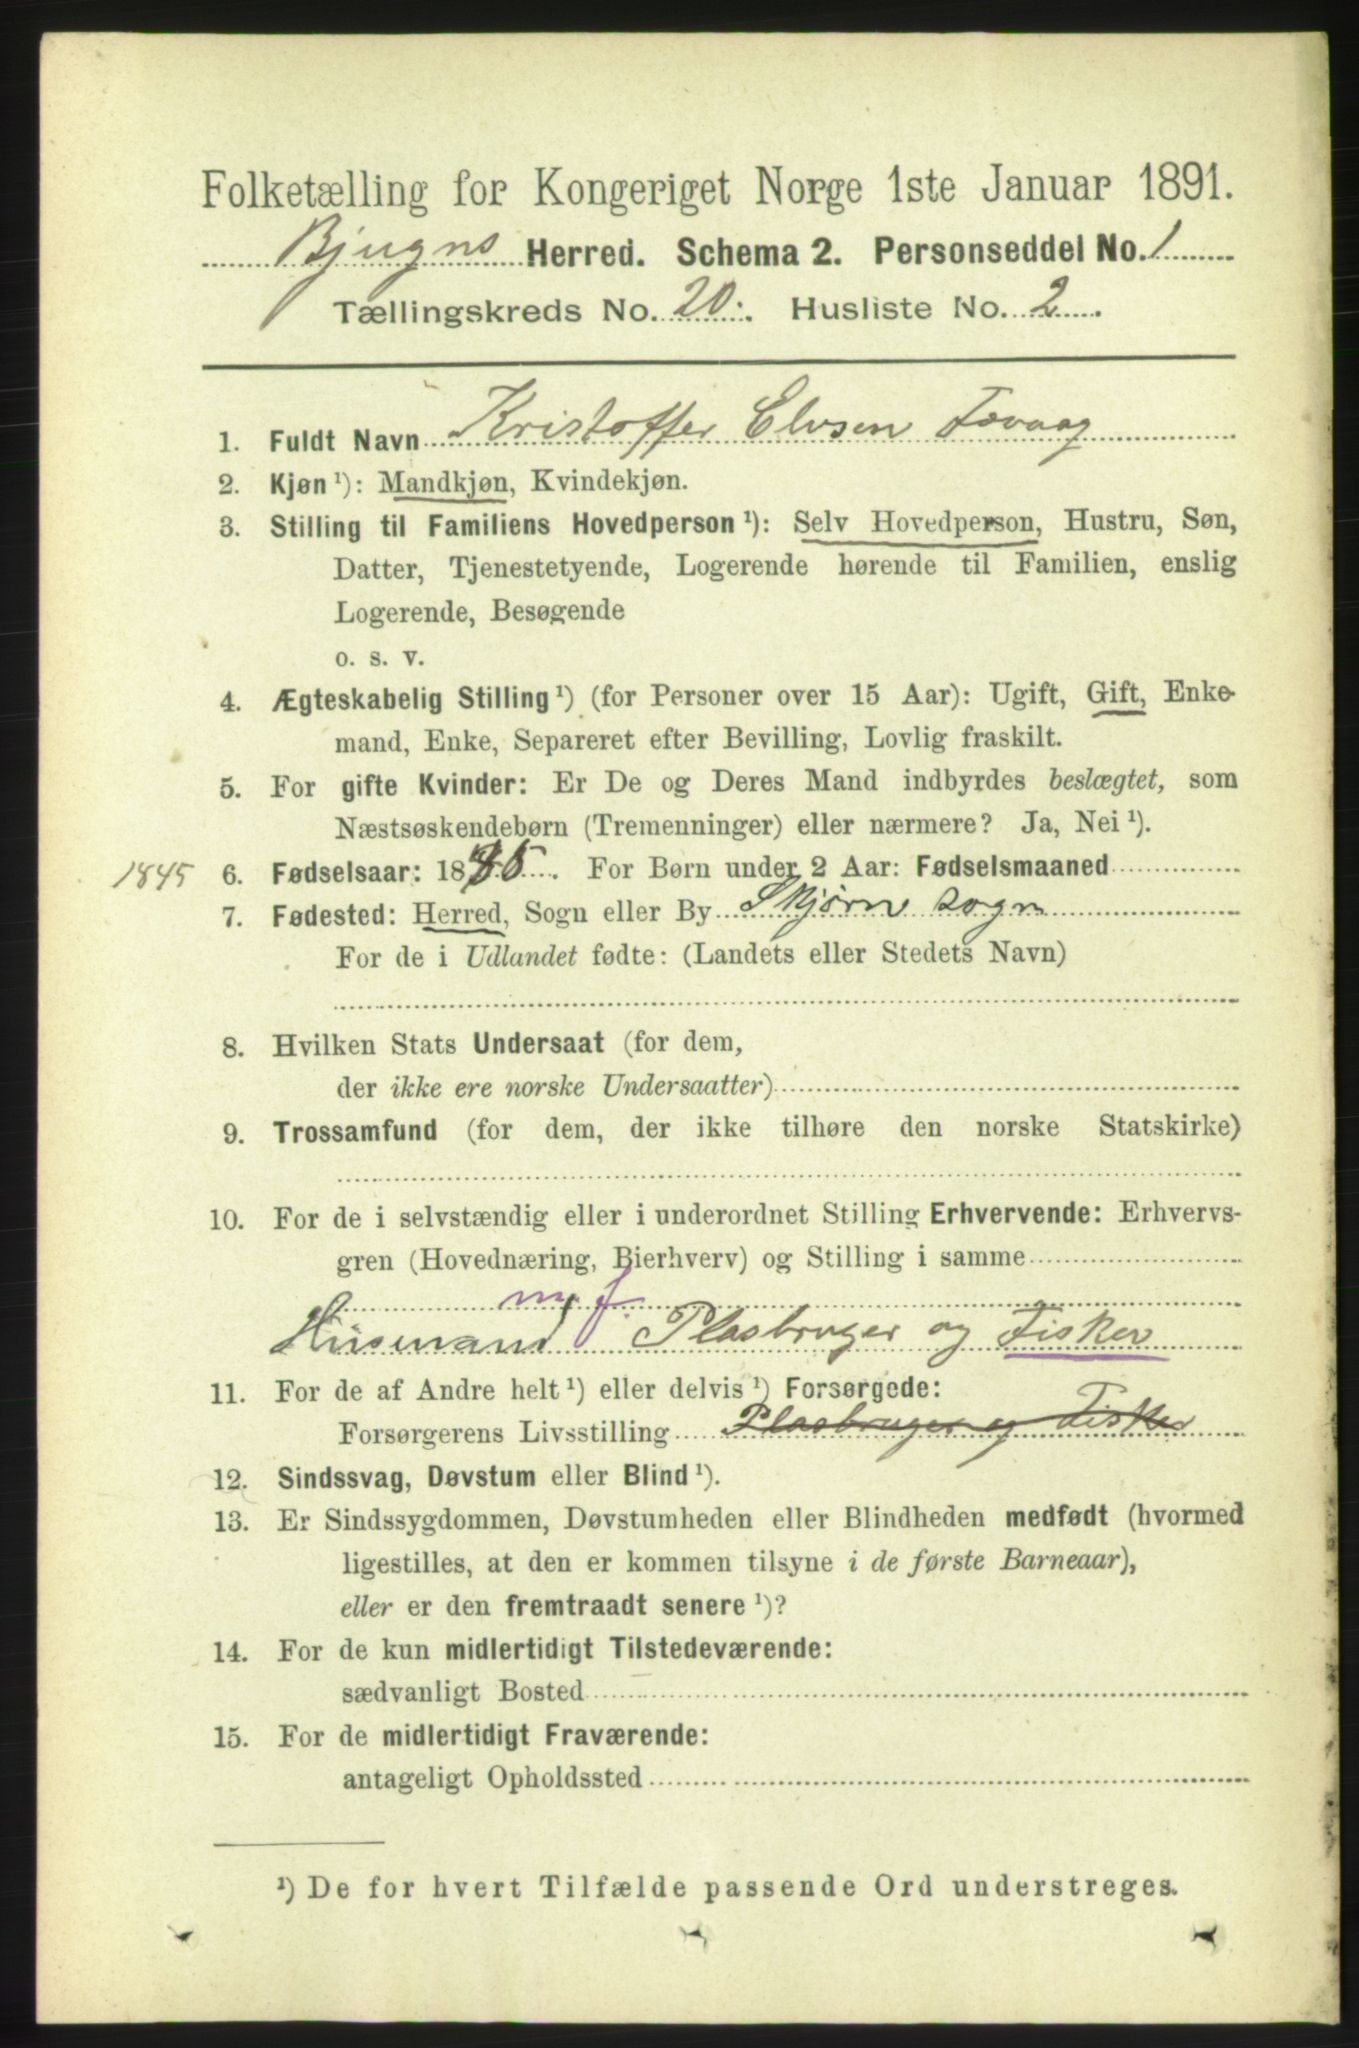 Folketælling for Kongeriget Norge 1ste Januar 1891.
Bjugns Herred. Schema 2. Personseddel No. 1
Tællingskreds No. 20. Husliste No. 2
1. Fuldt Navn Kristoffer Elvsen
2. Kjøn ¹): Mandkjøn, Kvindekjøn.
3. Stilling til Familiens Hovedperson ¹): Selv Hovedperson, Hustru, Søn,
Datter, Tjenestetyende, Logerende hørende til Familien, enslig
Logerende, Besøgende
o. s. v.
4. Ægteskabelig Stilling ¹) (for Personer over 15 Aar): Ugift, Gift, Enke-
mand, Enke, Separeret efter Bevilling, Lovlig fraskilt.
5. For gifte Kvinder: Er De og Deres Mand indbyrdes beslægtet, som
Næstsøskendebørn (Tremenninger) eller nærmere? Ja, Nei ¹).
1845 6. Fødselsaar: 1845. For Børn under 2 Aar: Fødselsmaaned
7. Fødested: Herred, Sogn eller By Skjørn sogn
For de i Udlandet fødte: (Landets eller Stedets Navn)
8. Hvilken Stats Undersaat (for dem,
der ikke ere norske Undersaatter)
9. Trossamfund (for dem, der ikke tilhøre den norske Statskirke)
10. For de i selvstændig eller i underordnet Stilling Erhvervende: Erhvervs-
gren (Hovednæring, Bierhverv) og Stilling i samme
m. f.
Husmand Plasbruger og Fisker
11. For de af Andre helt ¹) eller delvis ¹) Forsørgede:
Forsørgerens Livsstilling Plasbruger og Fisker
12. Sindssvag, Døvstum eller Blind ¹).
13. Er Sindssygdommen, Døvstumheden eller Blindheden medfødt (hvormed
ligestilles, at den er kommen tilsyne i de første Barneaar),
eller er den fremtraadt senere ¹)?
14. For de kun midlertidigt Tilstedeværende:
sædvanligt Bosted
15. For de midlertidigt Fraværende:
antageligt Opholdssted
¹) De for hvert Tilfælde passende Ord understreges.